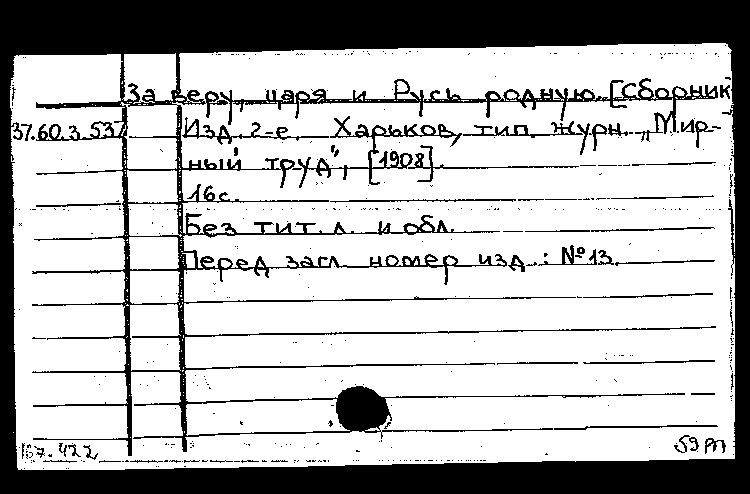 За веру, царя и Русь родную. [Сборник]
37.60.3.537 Изд. 2-е. Харьков, тип. журн. „Мир-
ный труд", [1908].
16с.
Без тит. л. и обл.
Перед загл. номер изд.: №13.
167.422